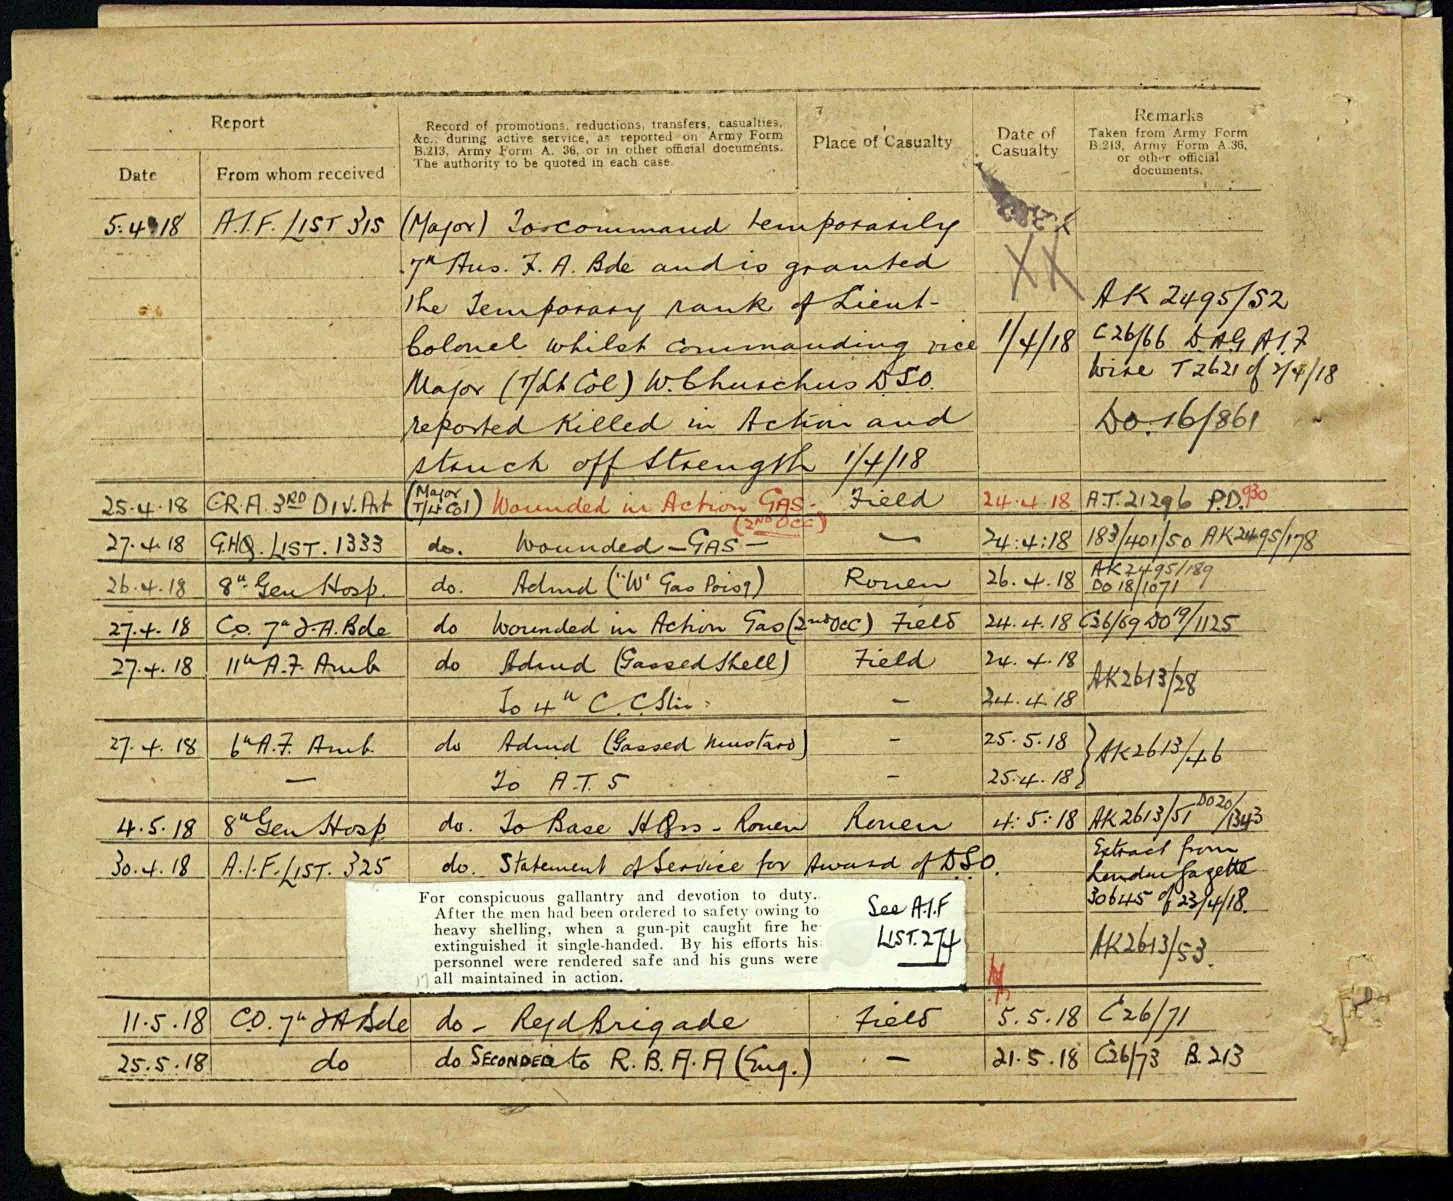 Report
Record of promotions, reductions, transfers, casualties,
&c., during active service, as reported on Army Form
B.213, Army Form A. 36, or in other official documents.
The authority to be quoted in each case.
Place of Casualty
Date of
Casualty
Remarks
Taken from Army Form
B.213, Army Form A.36,
or other official
documents.
Date
From whom received
5.4.18 A.I.F. LIST 315 (Major) To command temporarily
7th Aus. F. A. Bde and is granted
the Temporary rank of Lieut-
AK 2495/52
Colonel whilst commanding vice 1/4/18 C26/66 D.A.G A.I.F
Major (T/Lt Col) W. Churchus D.S.O. Wire T2621 of 2/4/18
reported Killed in Action and DO. 16/861
struck off Strength 1/4/18
25.4.18 C.R.A. 3RD DIV. Art (Major T/Lt Col) Wounded in Action GAS - Field 24.4.18 A.T. 21296 P.D. 930
(2ND OCC)
27.4.18 G.H.Q. LIST. 1333 do. Wounded - GAS - — 24:4:18 183/401/50 AK2495/178
26.4.18 8th Gen Hosp. do. Admd ("W" Gas Poisg) Rouen 26.4.18 AK2495/189
DO 18/1071
27.4.18 C.O. 7th F.A. Bde do Wounded in Action Gas (2nd Occ) Field 24.4.18 C36/69 DO 19/1125
27.4.18 11th A.F. Amb do Admd (Gassed Shell) Field 24.4.18
AK2613/28
To 4th C.C. Stn. - 24.4.18
27.4.18 6th A.F. Amb. do Admd (Gassed Mustard) - 25.5.18
AK2613/46
— To A.T. 5 - 25.4.18
4.5.18 8th Gen Hosp do. To Base HQrs - Rouen Rouen 4.5.18 AK2613/51 DO20/1343
30.4.18 A.I.F. LIST. 325 do. Statement of Service for Award of D.S.O. Extract from
London Gazette
30645 of 23/4/18.
AK2613/53.
For conspicuous gallantry and devotion to duty.
After the men had been ordered to safety owing to
heavy shelling, when a gun-pit caught fire he
extinguished it single-handed. By his efforts his
personnel were rendered safe and his guns were
all maintained in action.
See A.I.F
LIST. 274
11.5.18 C.O. 7th FA Bde do - Rejd Brigade Field 5.5.18 C26/71
25.5.18 do do SECONDED to R.B.A.A (Eng.) — 21.5.18 C26/73 B.213